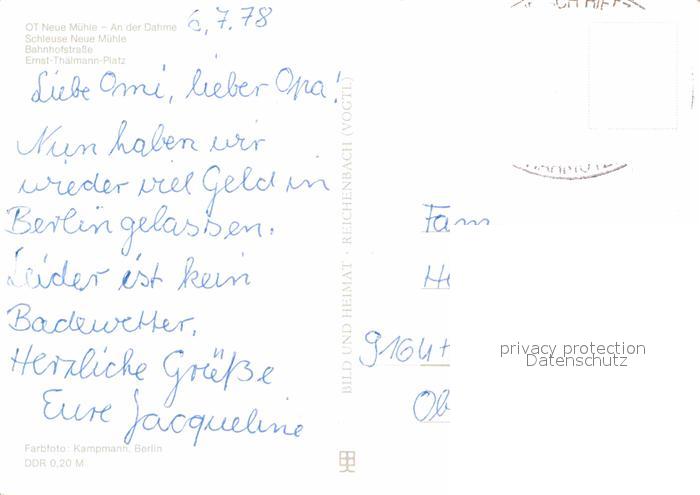 OT Neue Mühle – An der Dahme
Schleuse Neue Mühle
Bahnhofstraße
Ernst-Thälmann-Platz
6.7.78
Liebe Omi, lieber Opa!
Nun haben wir
wieder viel Geld in
Berlin gelassen.
Leider ist kein
Badewetter.
Herzliche Grüße
Eure Jacqueline
Farbfoto: Kampmann, Berlin
DDR 0,20 M
BILD UND HEIMAT · REICHENBACH (VOGTL)
Fam
privacy protection
Datenschutz